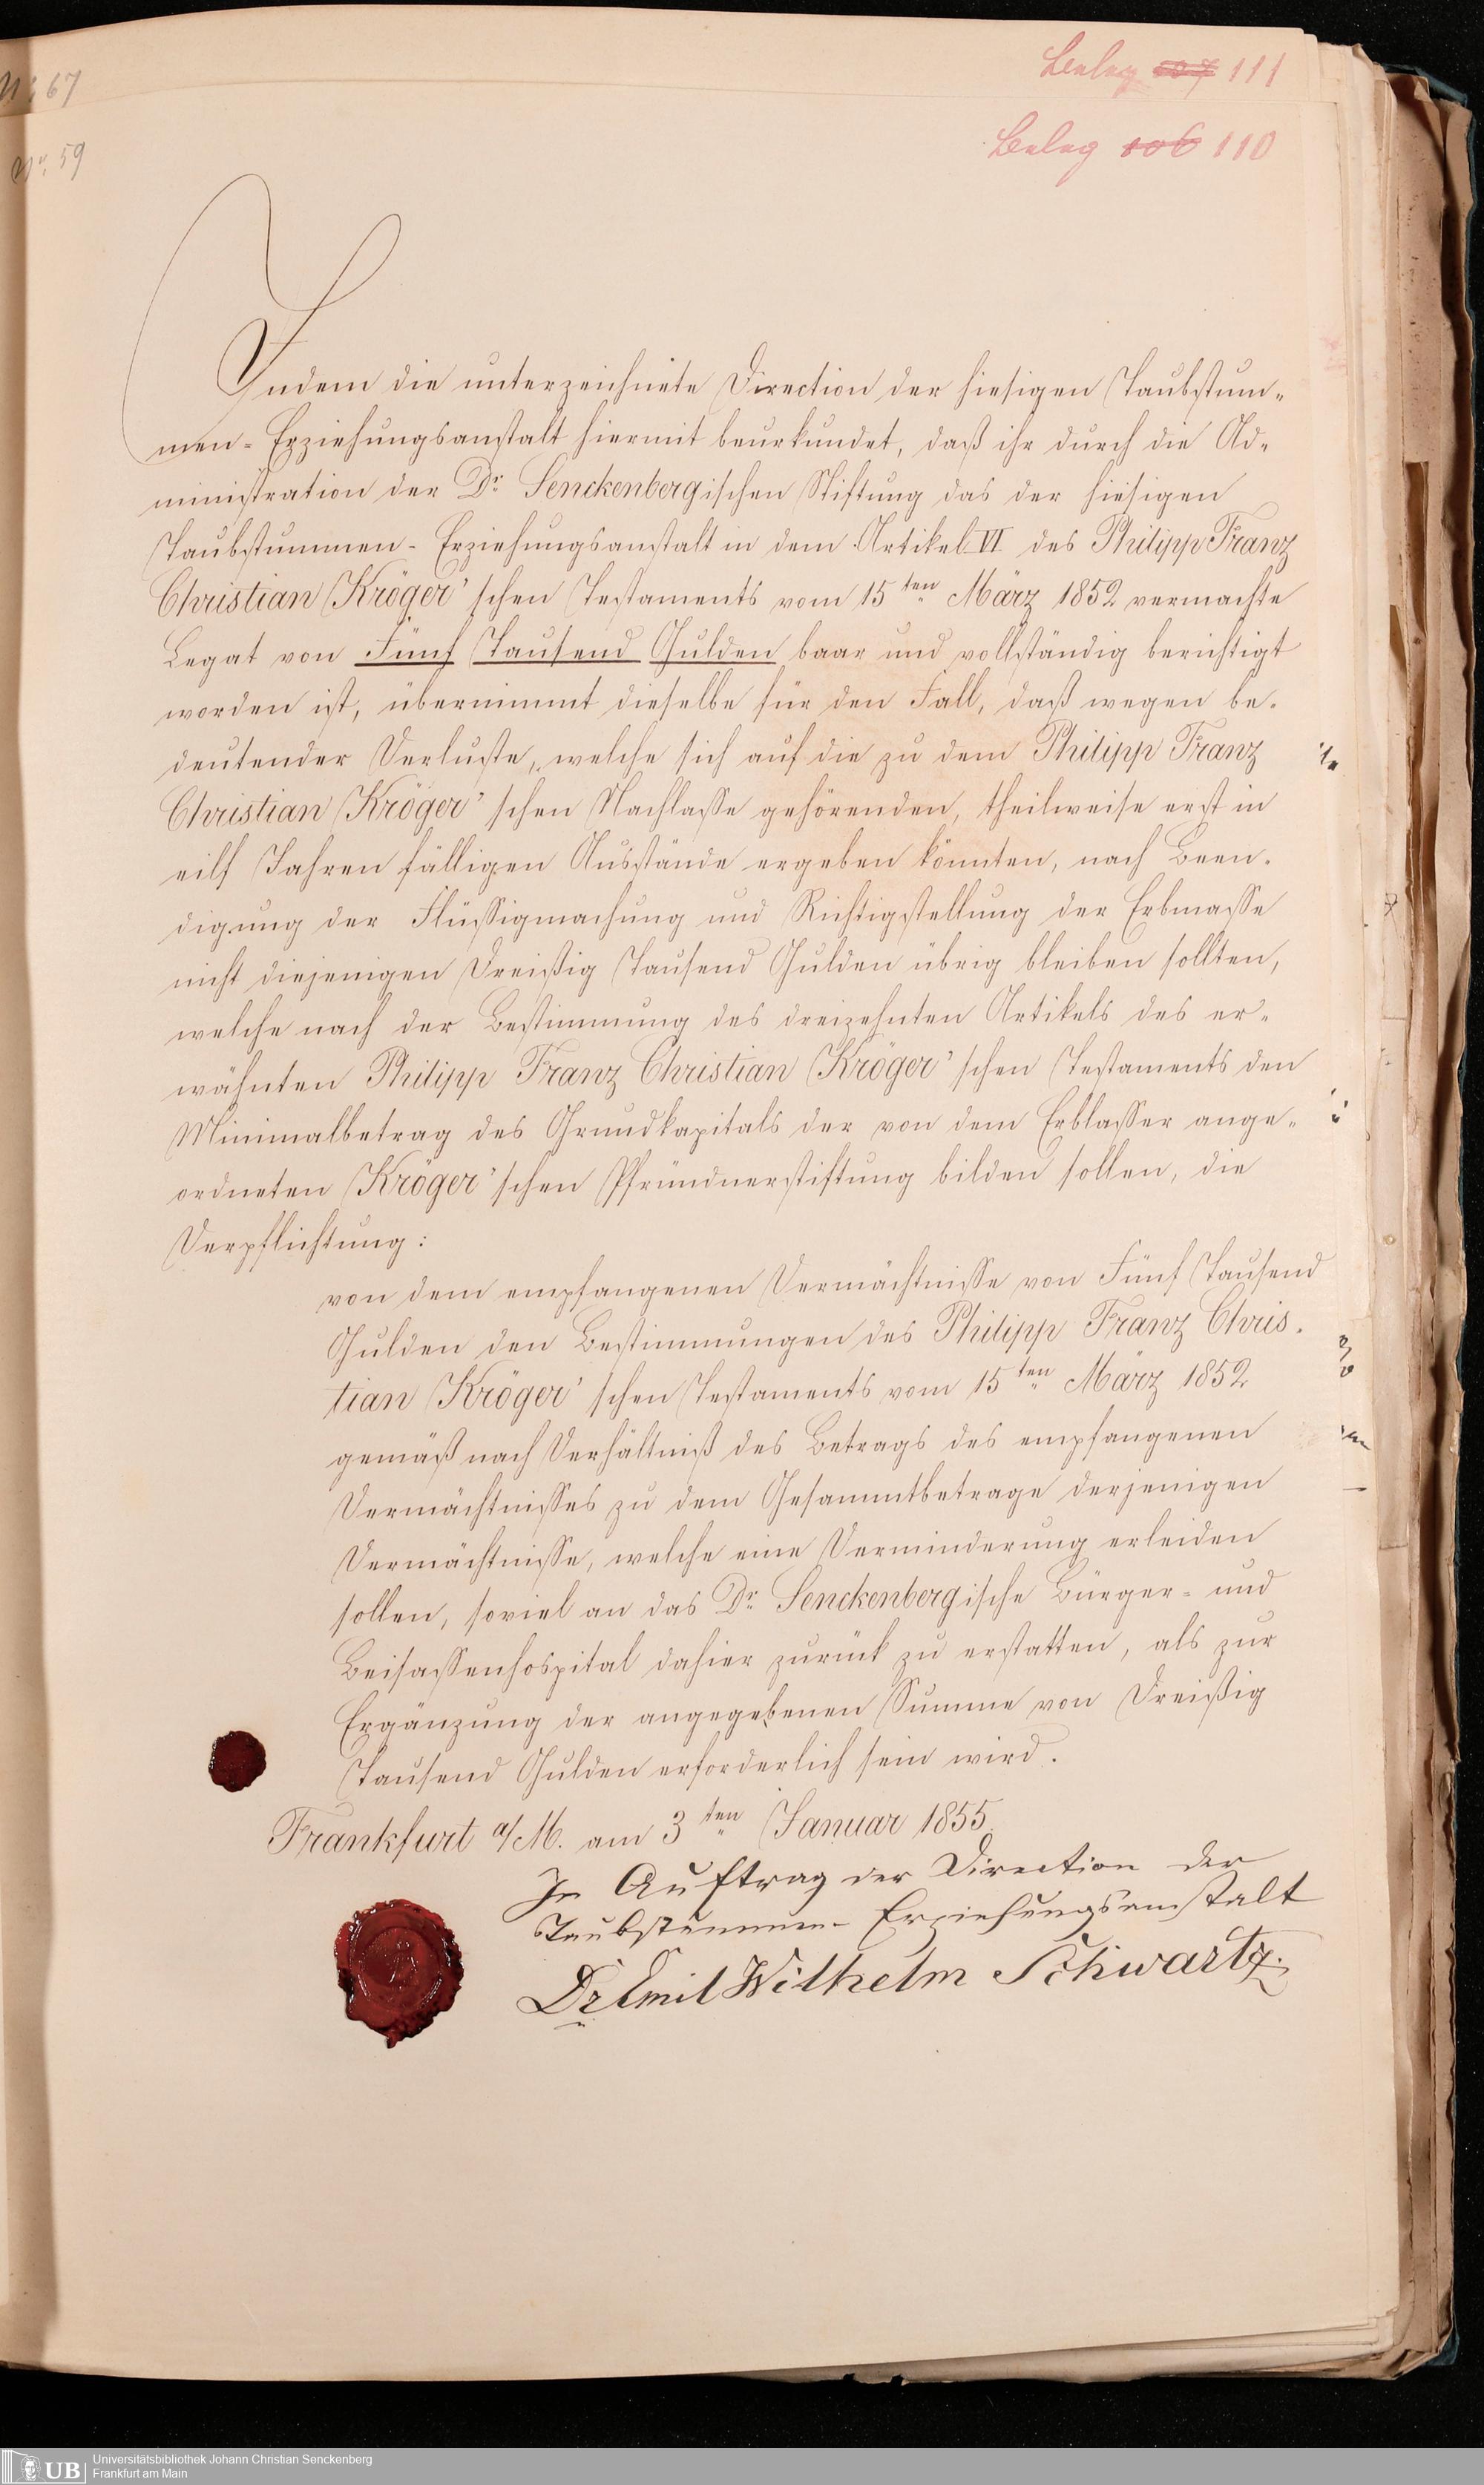 N<sup>o</sup>. 67
Beleg 107 111
N<sup>o</sup>. 59
Beleg 106 110
Indem die unterzeichnete Direction der hiesigen Taubstum-
men-Erziehungsanstalt hiermit beurkundet, daß ihr durch die Ad-
ministration der Dr. Senckenbergischen Stiftung das der hiesigen
Taubstummen-Erziehungsanstalt in dem Artikel VI des Philipp Franz
Christian Kröger'schen Testaments vom 15ten März 1852 vermachte
Legat von Fünf Tausend Gulden baar und vollständig berichtigt
worden ist, übernimmt dieselbe für den Fall, daß wegen be-
deutender Verluste, welche sich auf die zu dem Philipp Franz
Christian Kröger'schen Nachlasse gehörenden, theilweise erst in
eilf Jahren fälligen Ausstände ergeben könnten, nach Been-
digung der Flüssigmachung und Richtigstellung der Erbmasse
nicht diejenigen Dreißig Tausend Gulden übrig bleiben sollten,
welche nach der Bestimmung des dreizehnten Artikels des er-
wähnten Philipp Franz Christian Kröger'schen Testaments den
Minimalbetrag des Grundkapitals der von dem Erblasser ange-
ordneten Kröger'schen Pfründnerstiftung bilden sollen, die
Verpflichtung:
von dem empfangenen Vermächtnisse von Fünf Tausend
Gulden den Bestimmungen des Philipp Franz Chris-
tian Kröger'schen Testaments vom 15ten März 1852
gemäß nach Verhältniß des Betrags des empfangenen
Vermächtnisses zu dem Gesammtbetrage derjenigen
Vermächtnisse, welche eine Verminderung erleiden
sollen, soviel an das Dr. Senckenbergische Bürger- und
Beisassenhospital dahier zurück zu erstatten, als zur
Ergänzung der angegebenen Summe von Dreißig
Tausend Gulden erforderlich sein wird.
Frankfurt a/M. am 3ten Januar 1855.
In Auftrag der Direction der
Taubstummen-Erziehungsanstalt
Dr Emil Wilhelm Schwartz.
UB Universitätsbibliothek Johann Christian Senckenberg
Frankfurt am Main